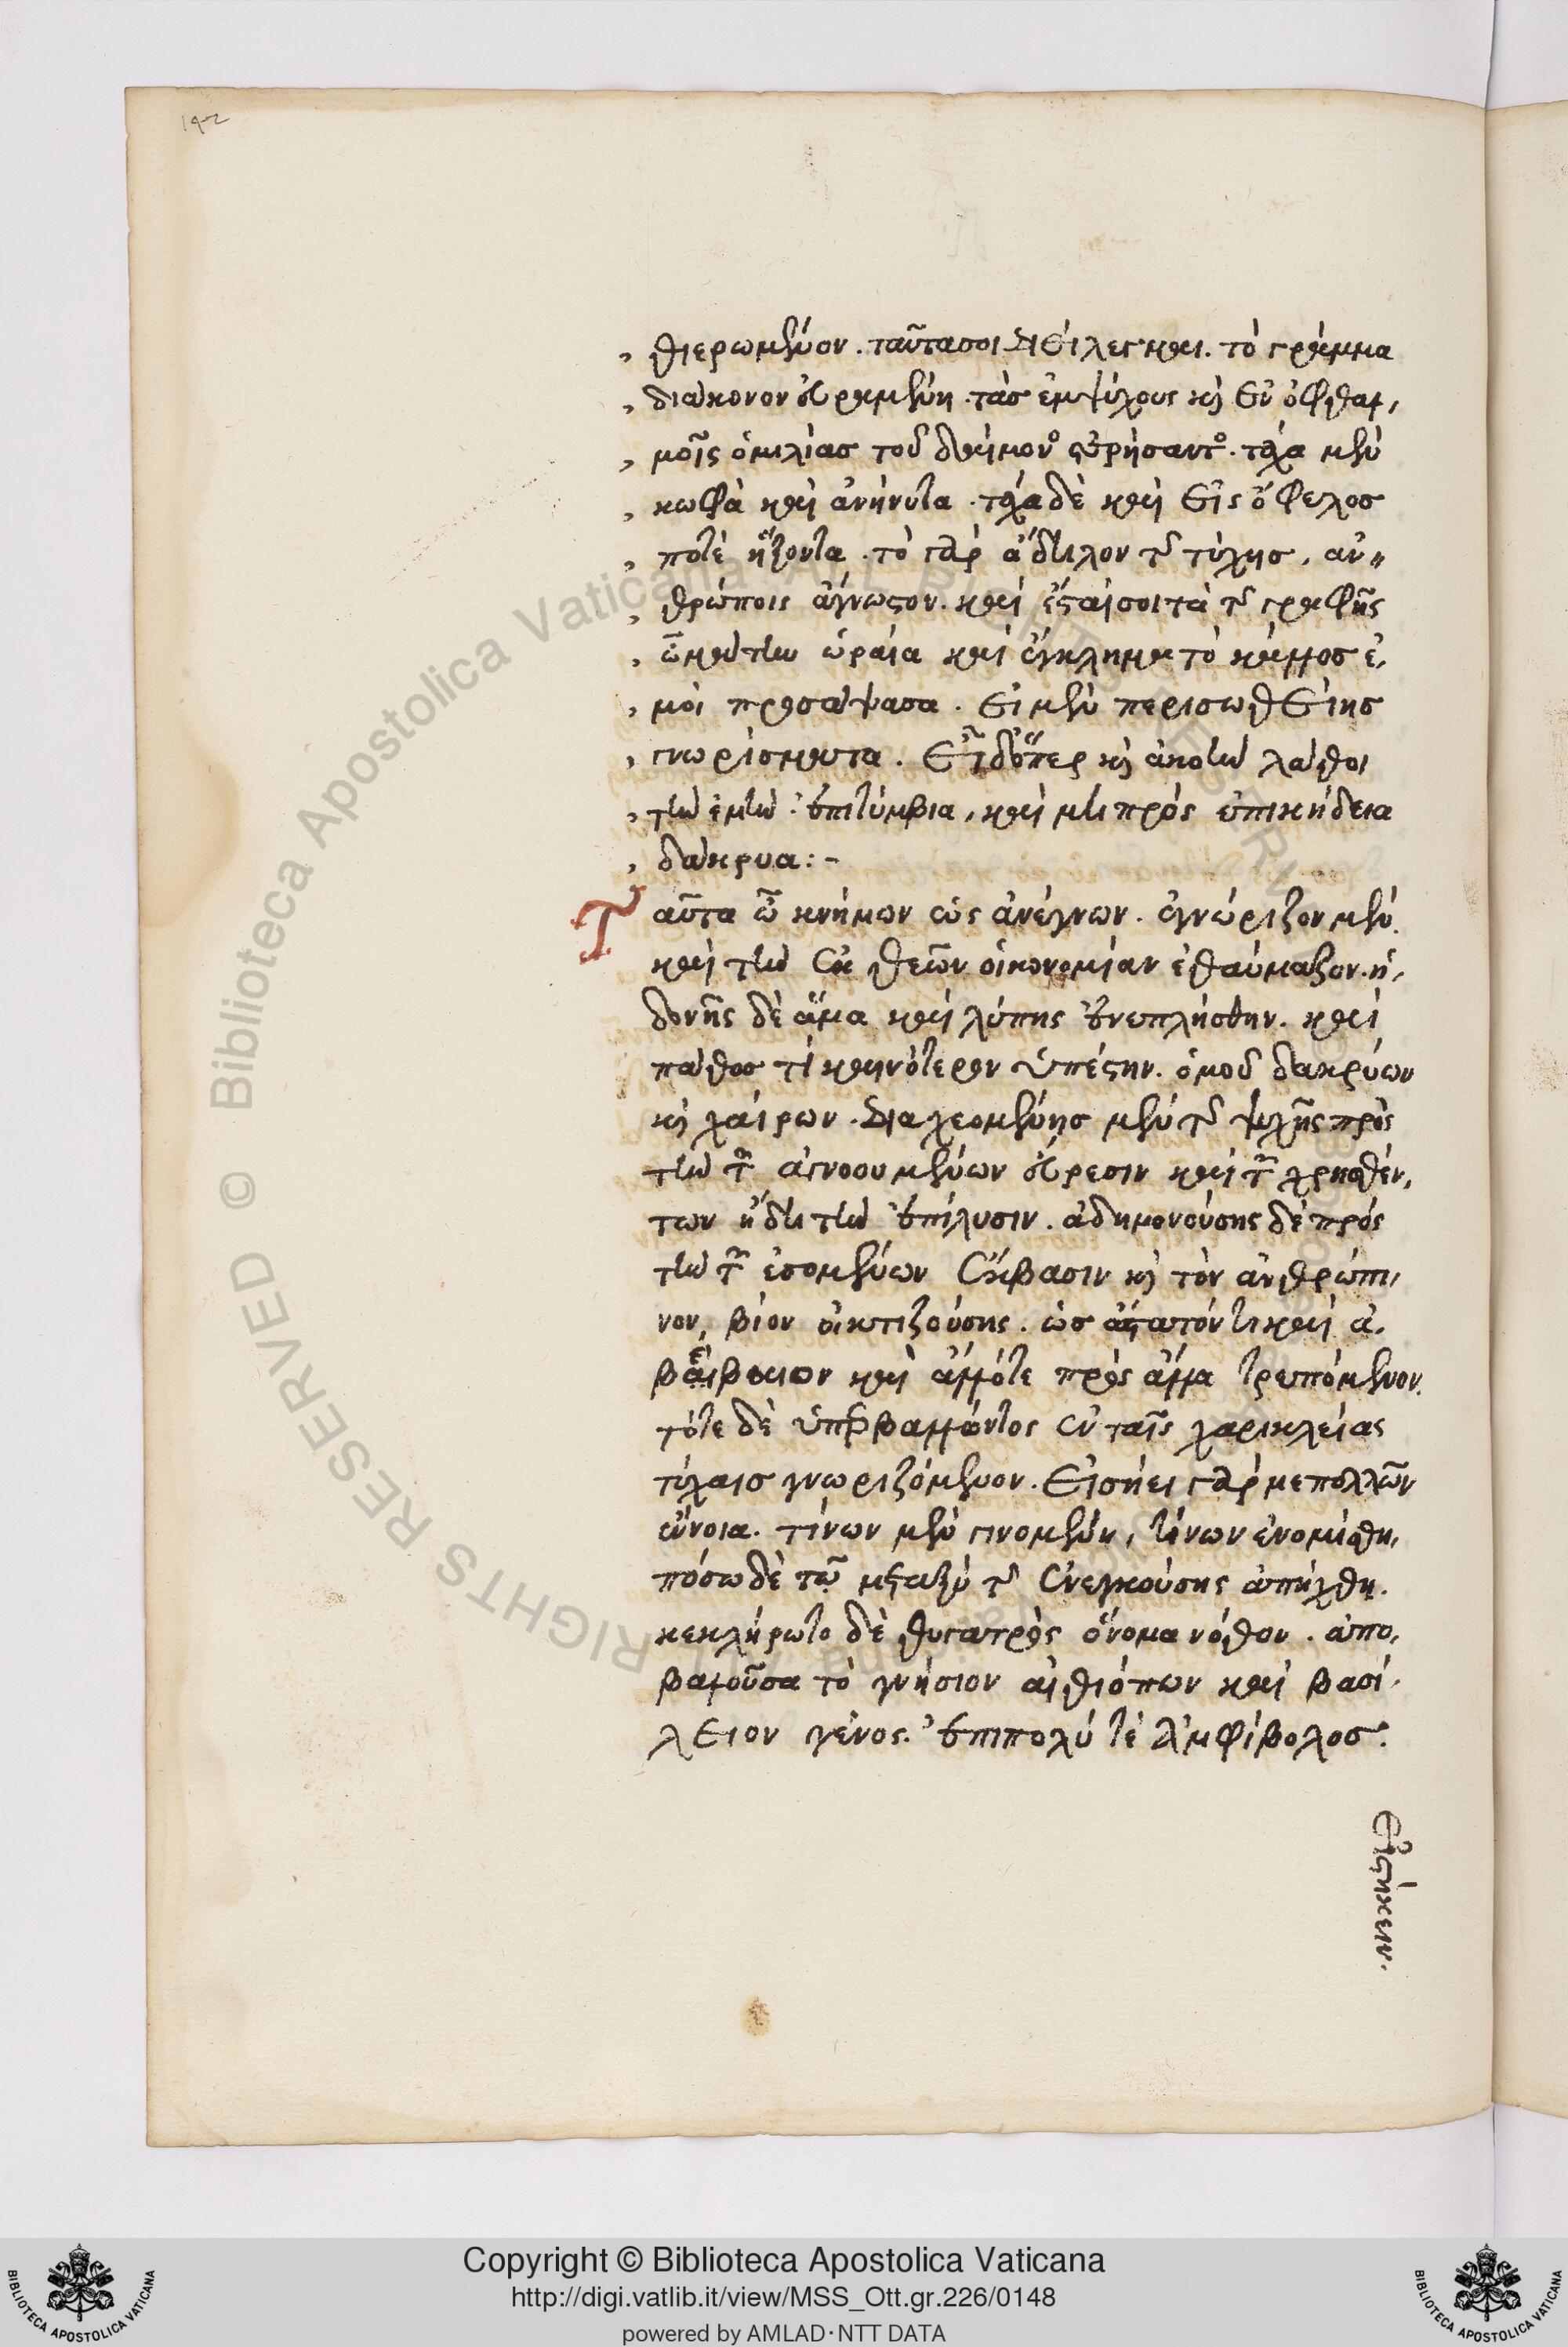 142
θιερωμένον. ταῦτα σοι διείλεγμαι. τὸ γράμμα
διάκονον εὑραμένη. τὰς ἐμψύχους καὶ ἐν ὀφθαλ,
μοῖς ὁμιλίας τοῦ δαίμονος στερήσαντος. τάχα μὲν
κωφὰ καὶ ἀνήνυτα. τάχα δὲ καὶ εἰς ὄφελος
ποτὲ ἥξοντα. τὸ γὰρ ἄδηλον τῆς τύχης, ἀν,,
θρώποις ἄγνωστον. καὶ ἔσται σοι τὰ τῆς γραφῆς
ὦ μάτην ὡραία καὶ ἔγκλημα τὸ κάλλος ἐ,
μοὶ προσάψασα. εἰ μὲν περισωθείης
γνωρίσματα. εἰ δ' ὅπερ καὶ ἀκοὴν λάθοι
τὴν ἐμὴν. ἐπιτύμβια, καὶ μητρὸς ἐπικήδεια
δάκρυα:-
Ταῦτα ὦ κνήμων ὡς ἀνέγνων. ἐγνώριζον μὲν.
καὶ τὴν ἐκ θεῶν οἰκονομίαν ἐθαύμαζον. ἡ,
δονῆς δὲ ἅμα καὶ λύπης ἐνεπλήσθην. καὶ
πάθος τί καινότερον ὑπέστην. ὁμοῦ δακρύων
καὶ χαίρων. διαχεομένης μὲν τῆς ψυχῆς πρὸς
τὴν τῶν ἀγνοουμένων εὕρεσιν καὶ τῶν χρησθέν,
των ἤδη τὴν ἐπίλυσιν. ἀδημονούσης δὲ πρὸς
τὴν τῶν ἐσομένων ἔκβασιν καὶ τὸν ἀνθρώπι,
νον, βίον οἰκτιζούσης. ὡς ἄστατόν τι καὶ ἀ,
βέβαιον καὶ ἄλλοτε πρὸς ἄλλα τρεπόμενον.
τότε δὲ ὑπερβαλλόντως ἐν ταῖς χαρικλείας
τύχαις γνωριζόμενον. εἰσῄει γάρ με πολλῶν
ἔννοια. τίνων μὲν γινομένη, τίνων ἐνομίσθη,
πόσω δὲ τῶ μεταξὺ τῆς ἐνεγκούσης ἀπήχθη.
κεκλήρωτο δὲ θυγατρὸς ὄνομα νόθον. ἀπο,
βαλοῦσα τὸ γνήσιον αἰθιόπων καὶ βασί,
λειον γένος. ἐπιπολύ τε ἀμφίβολος.
εἱστήκειν.
Copyright © Biblioteca Apostolica Vaticana
http://digi.vatlib.it/view/MSS_Ott.gr.226/0148
powered by AMLAD·NTT DATA
BIBLIOTECA APOSTOLICA VATICANA
BIBLIOTECA APOSTOLICA VATICANA
© Biblioteca Apostolica Vaticana ALL RIGHTS RESERVED